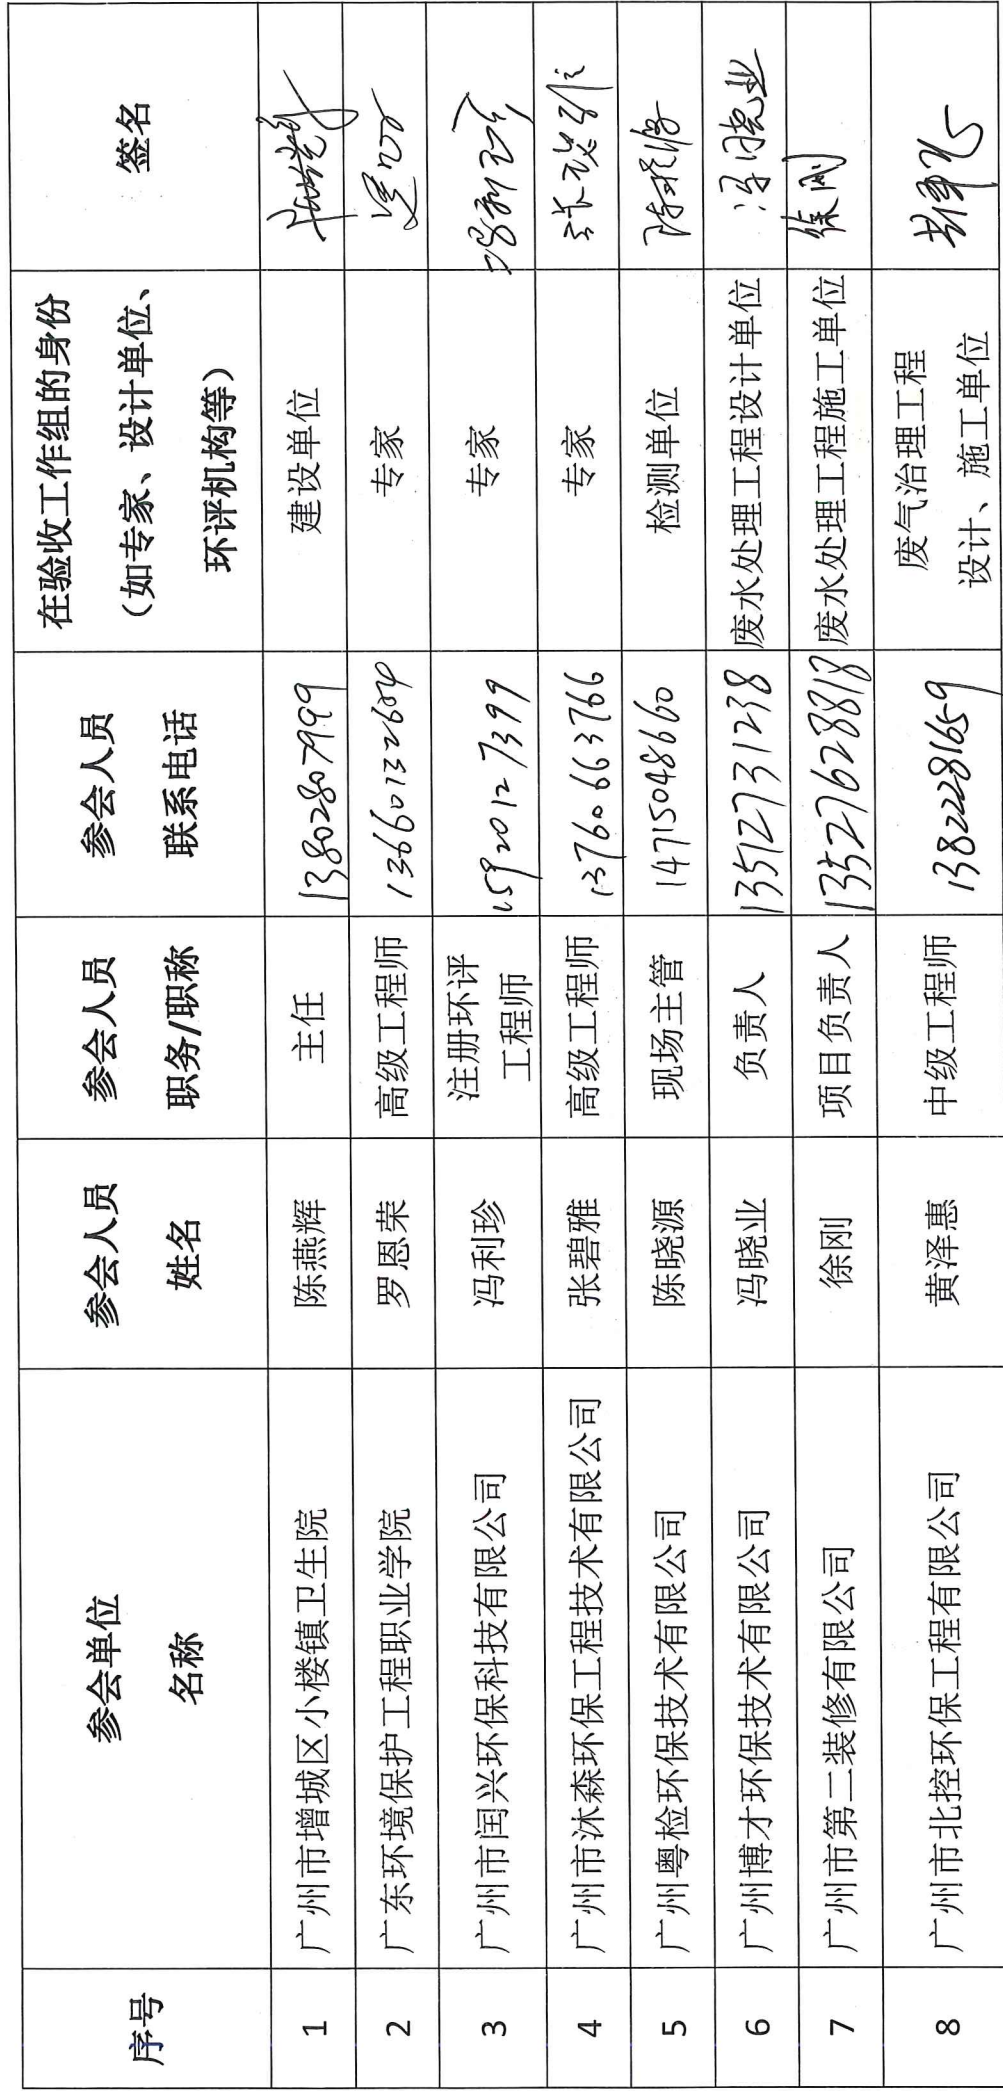 序号
参会单位
名称
参会人员
姓名
参会人员
职务/职称
参会人员
联系电话
在验收工作组的身份
（如专家、设计单位、
环评机构等）
签名
1
广州市增城区小楼镇卫生院
陈燕辉
主任
13802807999
建设单位
2
广东环境保护工程职业学院
罗恩荣
高级工程师
13660132604
专家
3
广州市闰兴环保科技有限公司
冯利珍
注册环评
工程师
15920127399
专家
冯利珍
4
广州市沐森环保工程技术有限公司
张碧雅
高级工程师
13760663766
专家
张碧雅
5
广州粤检环保技术有限公司
陈晓源
现场主管
14715048660
检测单位
陈晓源
6
广州博才环保技术有限公司
冯晓业
负责人
13512731238
废水处理工程设计单位
冯晓业
7
广州市第二装修有限公司
徐刚
项目负责人
13527628818
废水处理工程施工单位
徐刚
8
广州市北控环保工程有限公司
黄泽惠
中级工程师
13822281659
废气治理工程
设计、施工单位